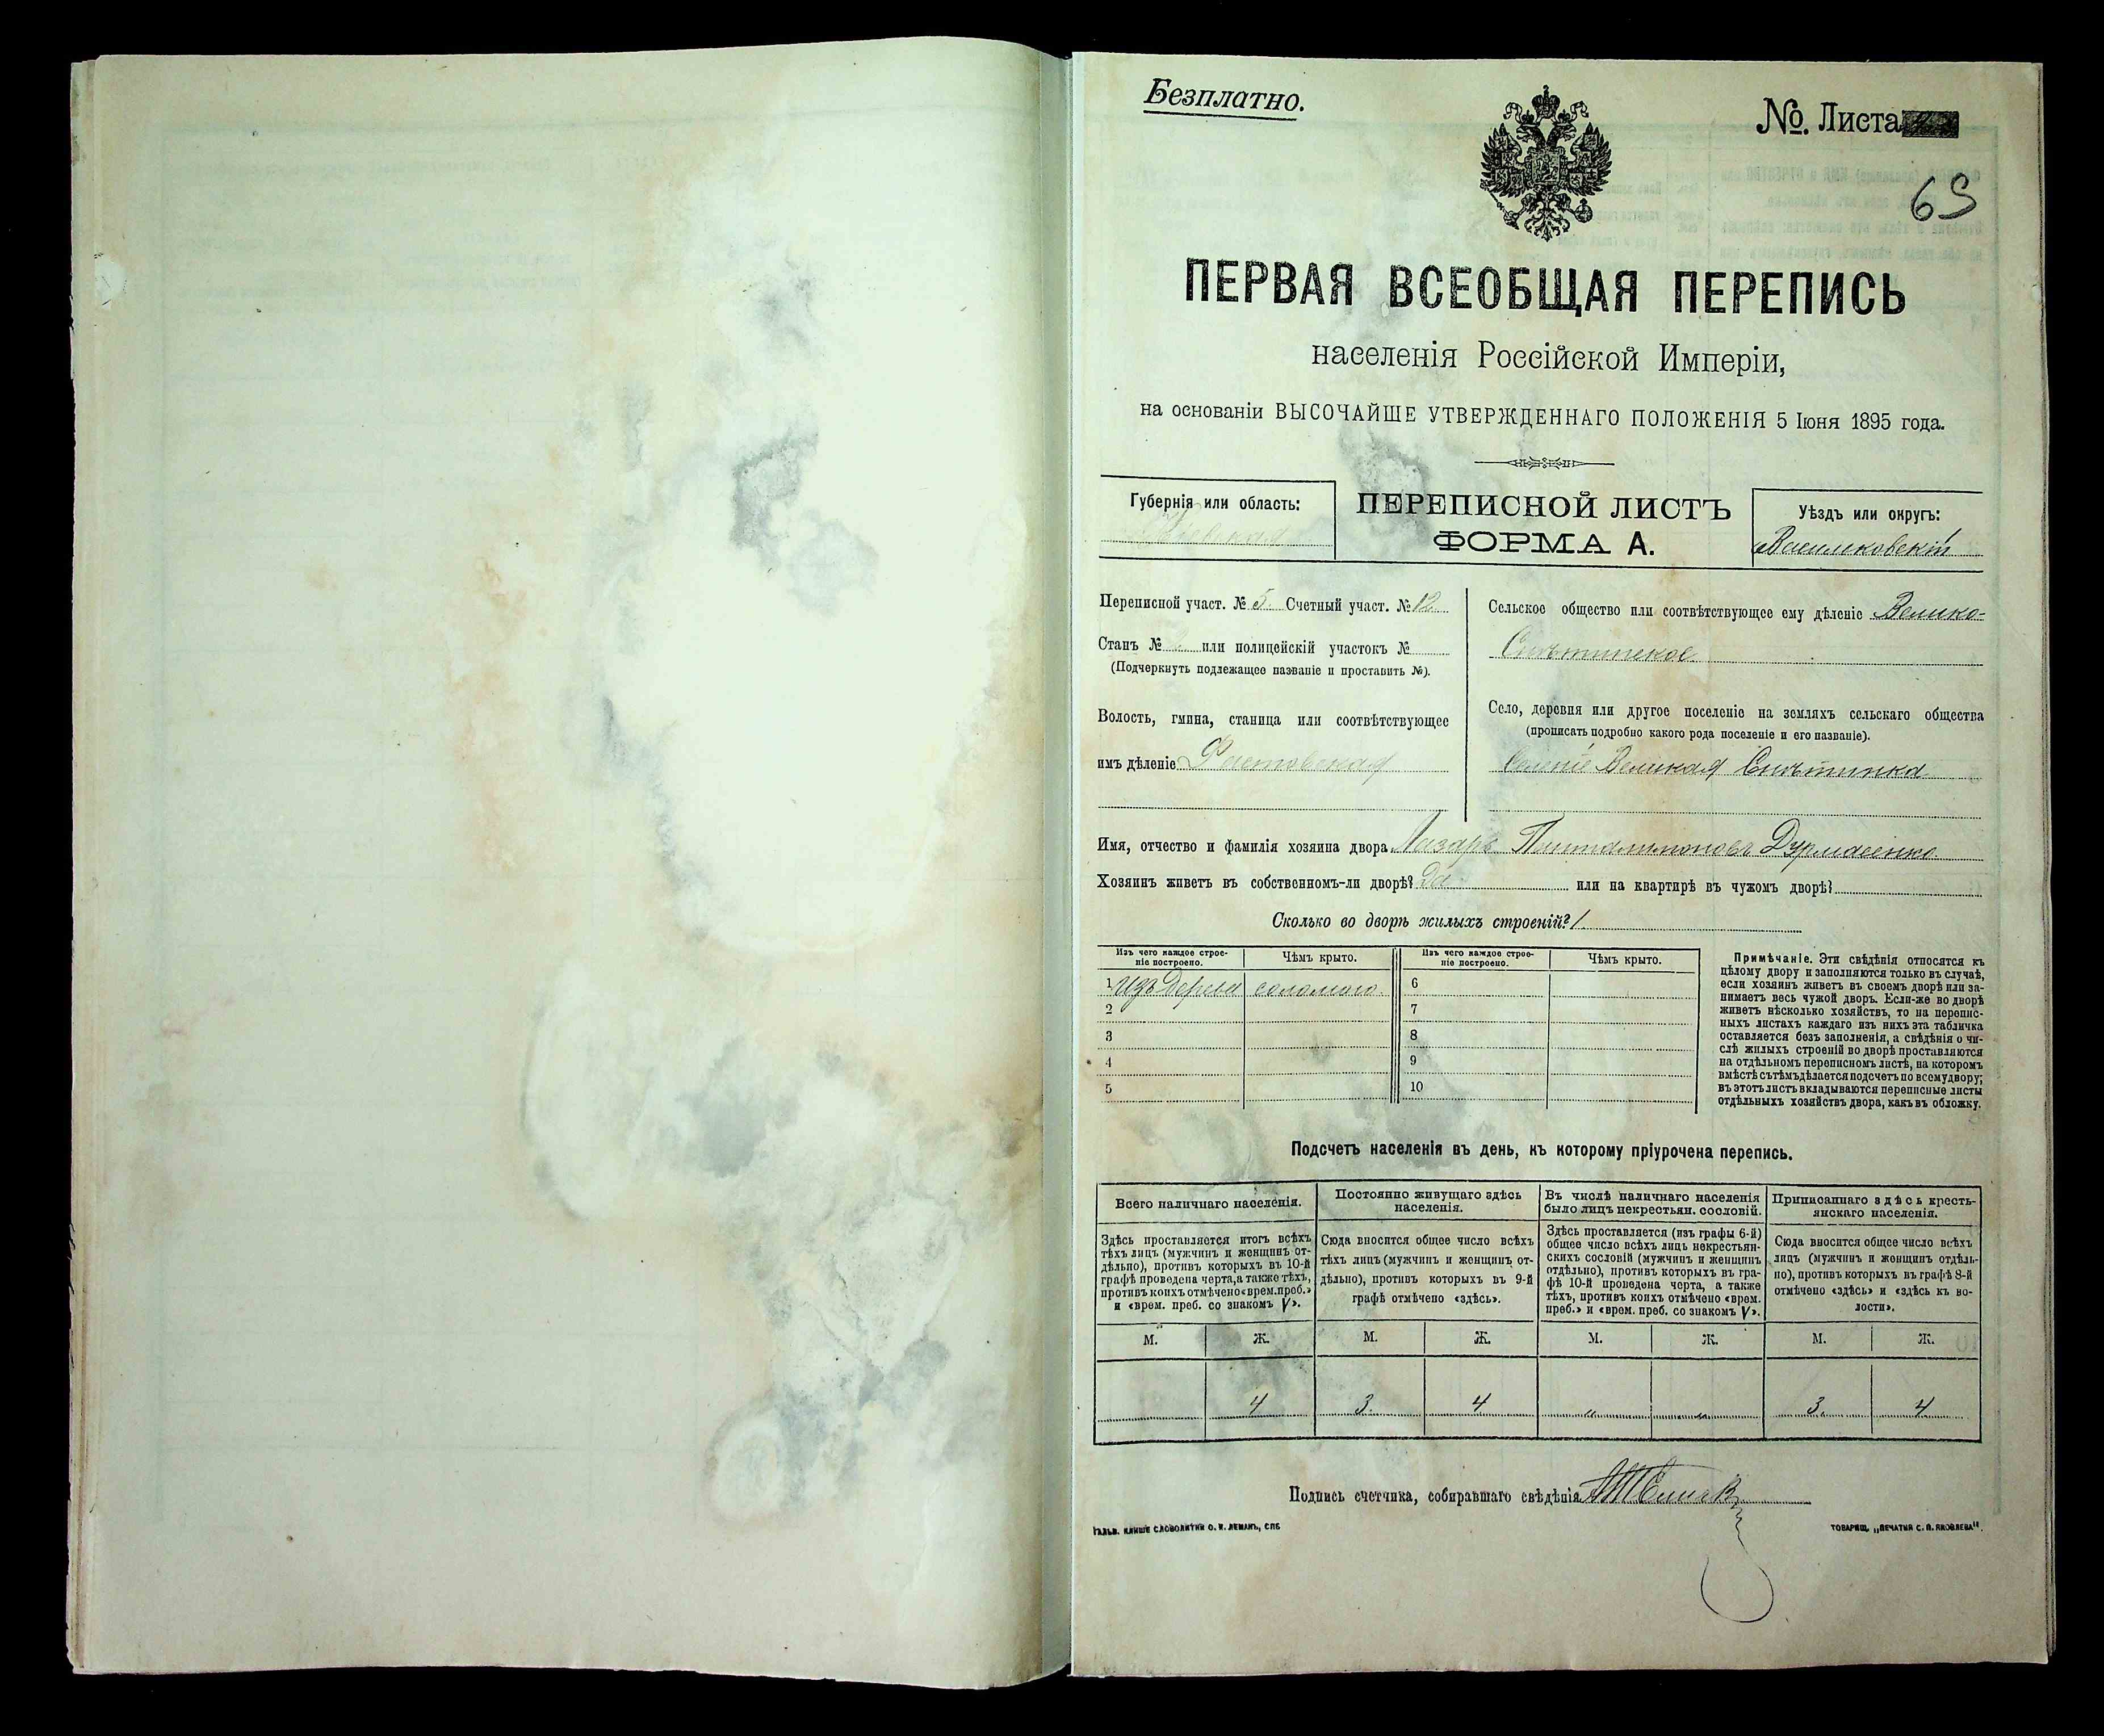 Безплатно.
№. Листа
69
ПЕРВАЯ ВСЕОБЩАЯ ПЕРЕПИСЬ
населенія Россійской Имперіи,
на основаніи ВЫСОЧАЙШЕ УТВЕРЖДЕННАГО ПОЛОЖЕНІЯ 5 Іюня 1895 года.
Губернія или область:
Кіевская
ПЕРЕПИСНОЙ ЛИСТЪ
ФОРМА А.
Уѣздъ или округъ:
Васильковскій
Переписной участ. № 5. Счетный участ. № 12
Станъ № 2 или полицейскій участокъ №
(Подчеркнуть подлежащее названіе и проставить №).
Волость, гмина, станица или соотвѣтствующее
имъ дѣленіе Фастовская
Сельское общество или соотвѣтствующее ему дѣленіе Велико-
Снѣтинское
Село, деревня или другое поселеніе на земляхъ сельскаго общества
(прописать подробно какого рода поселеніе и его названіе).
Селеніе Великая Снѣтинка
Имя, отчество и фамилія хозяина двора Лазарь Пантелимоновъ
Хозяинъ живетъ въ собственномъ-ли дворѣ? Да или на квартирѣ въ чужомъ дворѣ?
Сколько во дворѣ жилыхъ строеній? 1
Изъ чего каждое строе-
ніе построено.
Чѣмъ крыто.
Изъ чего каждое строе-
ніе построено.
Чѣмъ крыто.
1 Изъ дерева соломою. 6
2 7
3 8
4 9
5 10
Примѣчаніе. Эти свѣдѣнія относятся къ
цѣлому двору и заполняются только въ случаѣ,
если хозяинъ живетъ въ своемъ дворѣ или за-
нимаетъ весь чужой дворъ. Если-же во дворѣ
живетъ нѣсколько хозяйствъ, то на перепис-
ныхъ листахъ каждаго изъ нихъ эта табличка
оставляется безъ заполненія, а свѣдѣнія о чи-
слѣ жилыхъ строеній во дворѣ проставляются
на отдѣльномъ переписномъ листѣ, на которомъ
вмѣстѣ съ тѣмъ дѣлается подсчетъ по всему двору;
въ этотъ листъ вкладываются переписные листы
отдѣльныхъ хозяйствъ двора, какъ въ обложку.
Подсчетъ населенія въ день, къ которому пріурочена перепись.
Всего наличнаго населенія.
Здѣсь проставляется итогъ всѣхъ
тѣхъ лицъ (мужчинъ и женщинъ от-
дѣльно), противъ которыхъ въ 10-й
графѣ проведена черта, а также тѣхъ,
противъ коихъ отмѣчено «врем. проб.»
и «врем. преб. со знакомъ V».
Постоянно живущаго здѣсь
населенія.
Сюда вносится общее число всѣхъ
тѣхъ лицъ (мужчинъ и женщинъ от-
дѣльно), противъ которыхъ въ 9-й
графѣ отмѣчено «здѣсь».
Въ числѣ наличнаго населенія
было лицъ некрестьян. сословій.
Здѣсь проставляется (изъ графы 6-й)
общее число всѣхъ лицъ некрестьян-
скихъ сословій (мужчинъ и женщинъ
отдѣльно), противъ которыхъ въ гра-
фѣ 10-й проведена черта, а также
тѣхъ, противъ коихъ отмѣчено «врем.
преб.» и «врем. преб. со знакомъ V».
Приписаннаго здѣсь кресть-
янскаго населенія.
Сюда вносится общее число всѣхъ
лицъ (мужчинъ и женщинъ отдѣль-
но), противъ которыхъ въ графѣ 8-й
отмѣчено «здѣсь» и «здѣсь къ во-
лости».
М. Ж. М. Ж. М. Ж. М. Ж.
4 3. 4 „ „ 3. 4
Подпись счетчика, собиравшаго свѣдѣнія
ГАЛЬВ. КЛИШЕ СЛОВОЛИТНИ О. И. ЛЕМАНЪ, СПБ
ТОВАРИЩ. „ПЕЧАТНЯ С. П. ЯКОВЛЕВА".